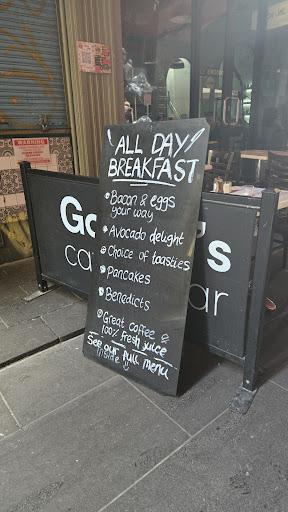 ALL DAY
BREAKFAST
Bacon & eggs
your way
Avocado delight
Choice of toasties
Pancakes
Benedicts
Great coffee &
100% fresh juice
See our full menu
inside
WARNING